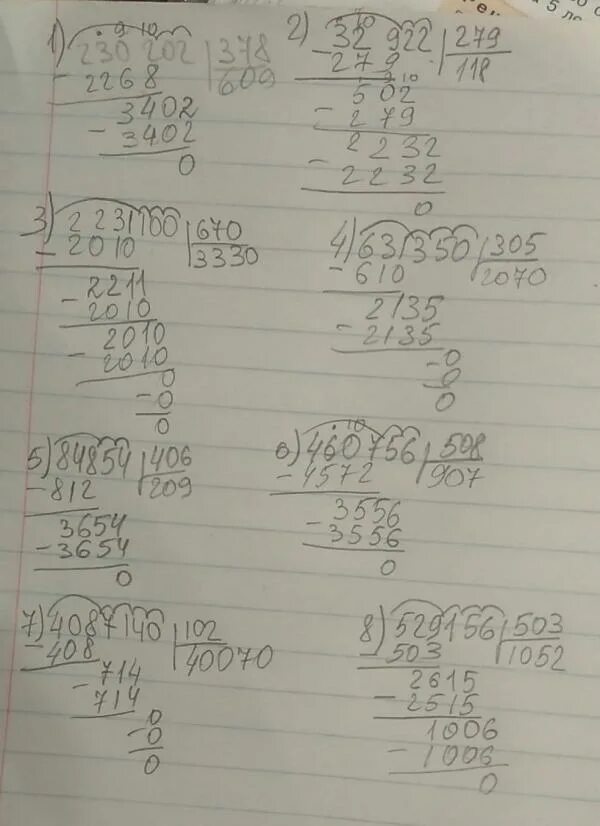 1) 230 202 | 378
- 2268 | 609
3402
- 3402
0
2) 32 922 | 279
- 279 | 118
502
- 279
2232
- 2232
0
3) 2231100 | 670
- 2010 | 3330
2211
- 2010
2010
- 2010
0
- 0
0
4) 631350 | 305
- 610 | 2070
2135
- 2135
0
- 0
0
5) 84854 | 406
- 812 | 209
3654
- 3654
0
6) 460756 | 508
- 4572 | 907
3556
- 3556
0
7) 4087140 | 102
- 408 | 40070
714
- 714
0
- 0
0
8) 529156 | 503
- 503 | 1052
2615
- 2515
1006
- 1006
0